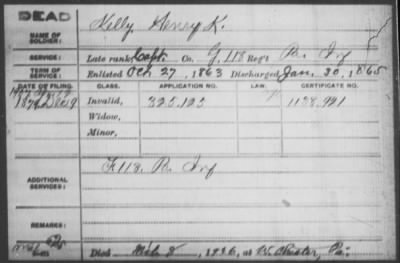 DEAD
NAME OF SOLDIER: Kelly, Henry K.
SERVICE: Late rank, Capt. Co. G, 118 Reg't Pa. Inf
TERM OF SERVICE: Enlisted Oct. 27, 1863 Discharged Jan. 30, 1865
DATE OF FILING. CLASS. APPLICATION NO. LAW. CERTIFICATE NO.
1879 Dec 9 Invalid, 325.123 1138.921
Widow,
Minor,
ADDITIONAL SERVICES: F 118. Pa. Inf
REMARKS:
Died Mch 8, 1916, at W. Chester, Pa.